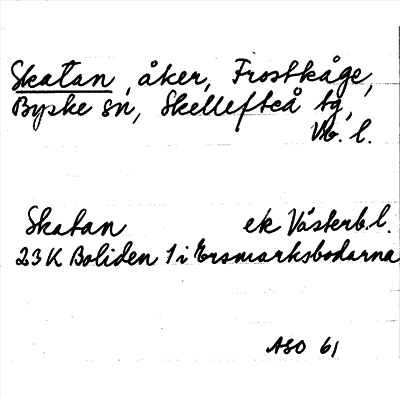 Skatan, åker, Frostkåge,
Byske sn, Skellefteå tg,
Vb. l.
Skatan ek Västerb. l.
23K Boliden 1 i Ersmarksbodarna
ASO 61